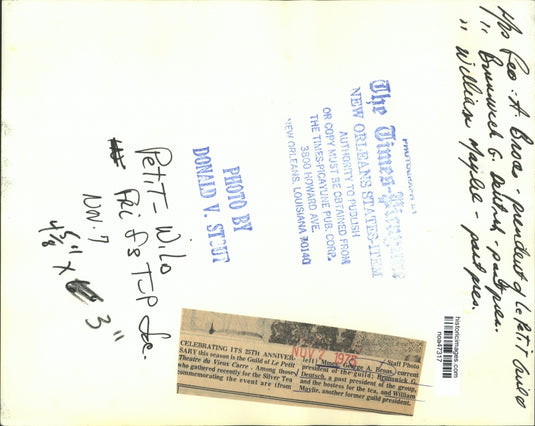 Mrs Geo. A. Broas - president of Le Petit Guild
" Brunswick G. Deutsch - past pres.
" William Maylie - past pres
PHOTOGRAPH BY
The Times-Picayune
NEW ORLEANS STATES-ITEM
AUTHORITY TO PUBLISH
OR COPY MUST BE OBTAINED FROM
THE TIMES-PICAYUNE PUB. CORP.
3800 HOWARD AVE.
NEW ORLEANS, LOUISIANA 70140
PHOTO BY
DONALD V. STOUT
Petit - W/o
Fri
Nov. 7
X 3"
historicimages.com
noa47317
NOV 7 1975
CELEBRATING ITS 25TH ANNIVER-
SARY this season is the Guild of Le Petit
Theatre du Vieux Carre. Among those
who gathered recently for the Silver Tea
commemorating the event are (from
Staff Photo
left) Mmes. George A. Broas, current
president of the guild; Brunswick G.
Deutsch, a past president of the group,
and the hostess for the tea, and William
Maylie, another former guild president.